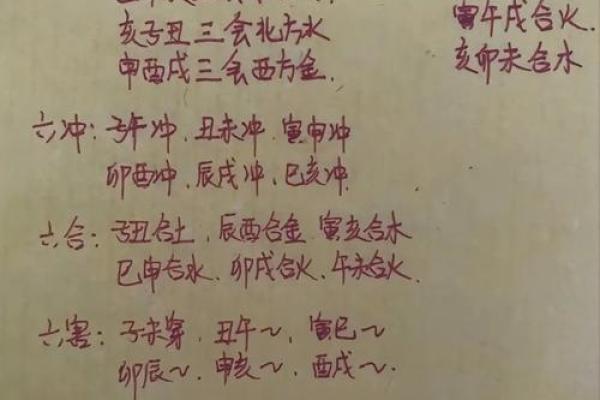 亥子丑三会北方水
申酉戌三会西方金.
寅午戌合火.
亥卯未合木
六冲: 子午冲. 丑未冲. 寅申冲
卯酉冲. 辰戌冲. 巳亥冲.
六合: 子丑合土. 辰酉合金 寅亥合木
巳申合水. 卯戌合火. 午未合火.
六害: 子未穿. 丑午~. 寅巳~
卯辰~. 申亥~. 酉戌~.